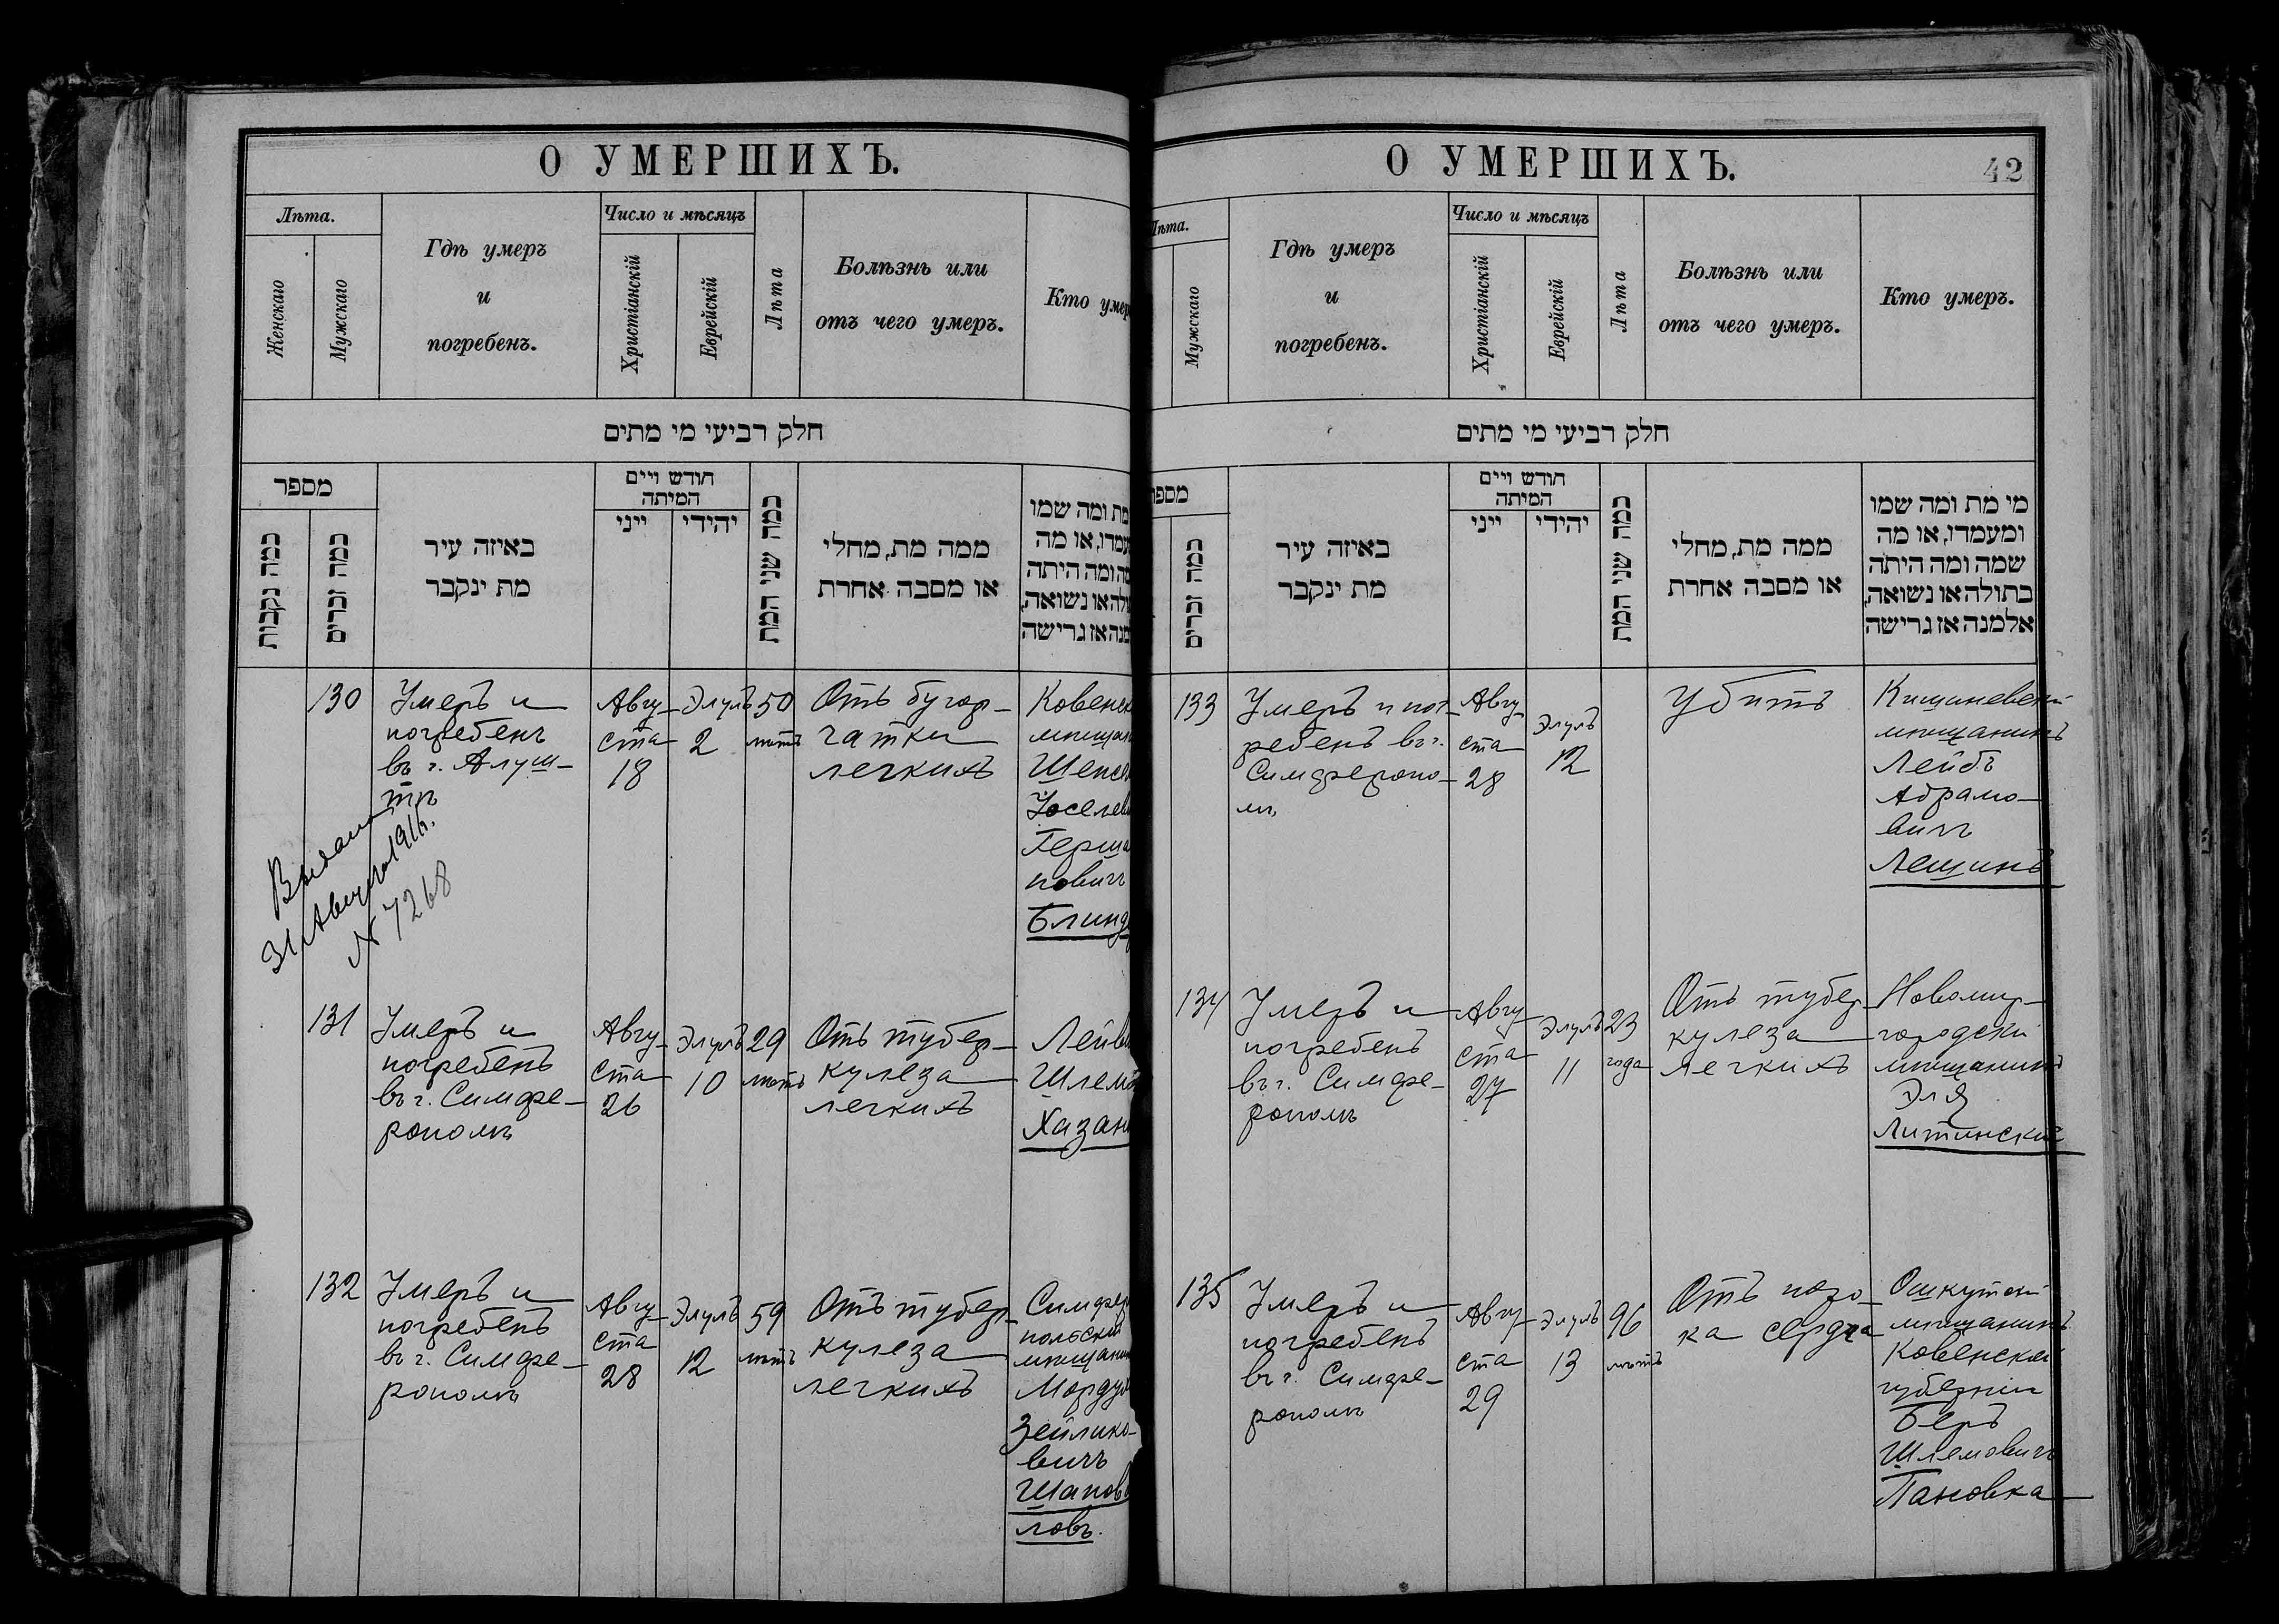 О УМЕРШИХЪ.
Лѣта.
Женскаго
Мужскаго
Гдѣ умеръ
и
погребенъ.
Число и мѣсяцъ
Христіанскій
Еврейскій
Лѣта
Болѣзнь или
отъ чего умеръ.
Кто умер
חלק רביעי מי מתים
מספר
כמה נקבות
כמה זכרים
באיזה עיר
מת ינקבר
חודש ויים
המיתה
ייני
יהידי
כמה שני המת
ממה מת, מחלי
או מסבה אחרת
מת ומה שמו
עמדו, או מה
מה ומה היתה
ולה או נשואה,
מנה אז גרישה
130
Умеръ и
погребенъ
въ г. Алуш-
тѣ
Авгу-
ста
18
Элулъ
2
50
лѣтъ
Отъ бугор-
чатки
легкихъ
Ковенск
мѣщан
Шепсе
Іоселев
Герша
новичъ
Блинд
Выдана
31 Августа 1916г.
№ 7268
131
Умеръ и
погребенъ
въ г. Симфе-
рополѣ
Авгу-
ста
26
Элулъ
10
29
лѣтъ
Отъ тубер-
кулеза
легкихъ
Лейв
Шлем
Хазан
132
Умеръ и
погребенъ
въ г. Симфе-
рополѣ
Авгу-
ста
28
Элулъ
12
59
лѣтъ
Отъ тубер-
кулеза
легкихъ
Симфер
польскій
мѣщанин
Мордух
Зейлико-
вичъ
Шапов
ловъ.
О УМЕРШИХЪ.
42
Лѣта.
Мужскаго
Гдѣ умеръ
и
погребенъ.
Число и мѣсяцъ
Христіанскій
Еврейскій
Лѣта
Болѣзнь или
отъ чего умеръ.
Кто умеръ.
חלק רביעי מי מתים
מספר
כמה זכרים
באיזה עיר
מת ינקבר
חודש ויים
המיתה
ייני
יהידי
כמה שני המת
ממה מת, מחלי
או מסבה אחרת
מי מת ומה שמו
ומעמדו, או מה
שמה ומה היתה
בתולה או נשואה,
אלמנה אז גרישה
133
Умеръ и пог-
ребенъ въ г.
Симферопо-
лѣ
Авгу-
ста
28
Элулъ
12
Убитъ
Кишиневскій
мѣщанинъ
Лейбъ
Абрамо-
вичъ
Лещинъ
134
Умеръ и
погребенъ
въ г. Симфе-
рополѣ
Авгу-
ста
27
Элулъ
11
23
года
Отъ тубер-
кулеза
легкихъ
Новомир-
городскій
мѣщанинъ
Эля
Литинскій
135
Умеръ и
погребенъ
въ г. Симфе-
рополѣ
Авгу-
ста
29
Элулъ
13
96
лѣтъ
Отъ поро-
ка сердца
мѣщанинъ
Ковенской
губерніи
Беръ
Шлемовичъ
Пановка